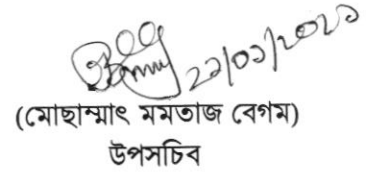 ২১/০১/২০২১
(মোছাম্মাৎ মমতাজ বেগম)
উপসচিব